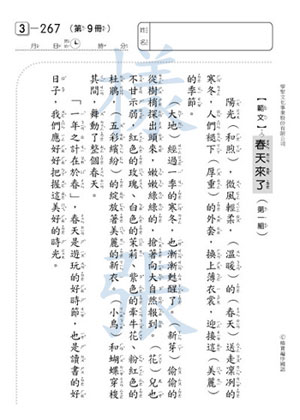 3－267（第9冊）
月 日 時 分
姓名
【範文】春天來了（第一組）
陽光（和煦），微風輕柔，（溫暖）的（春天）送走凜冽的
寒冬，人們褪下（厚重）的外套，換上薄衣裳，迎接這（美麗）
的季節。
（大地）經過一季的寒冬，也漸漸甦醒了。（新芽）偷偷的
從樹梢探出頭來，嫩嫩綠綠的，搶著向大自然報到。（花）兒也
不甘示弱，紅色的玫瑰、白色的茉莉、紫色的牽牛花、粉紅色的
杜鵑，（五彩繽紛）的綻放著美麗的新衣，（小鳥）和蝴蝶穿梭
其間，舞動了整個春天。
「一年之計在於春」，春天是遊玩的好時節，也是讀書的好
日子，我們應好好把握這美好的時光。
樣張